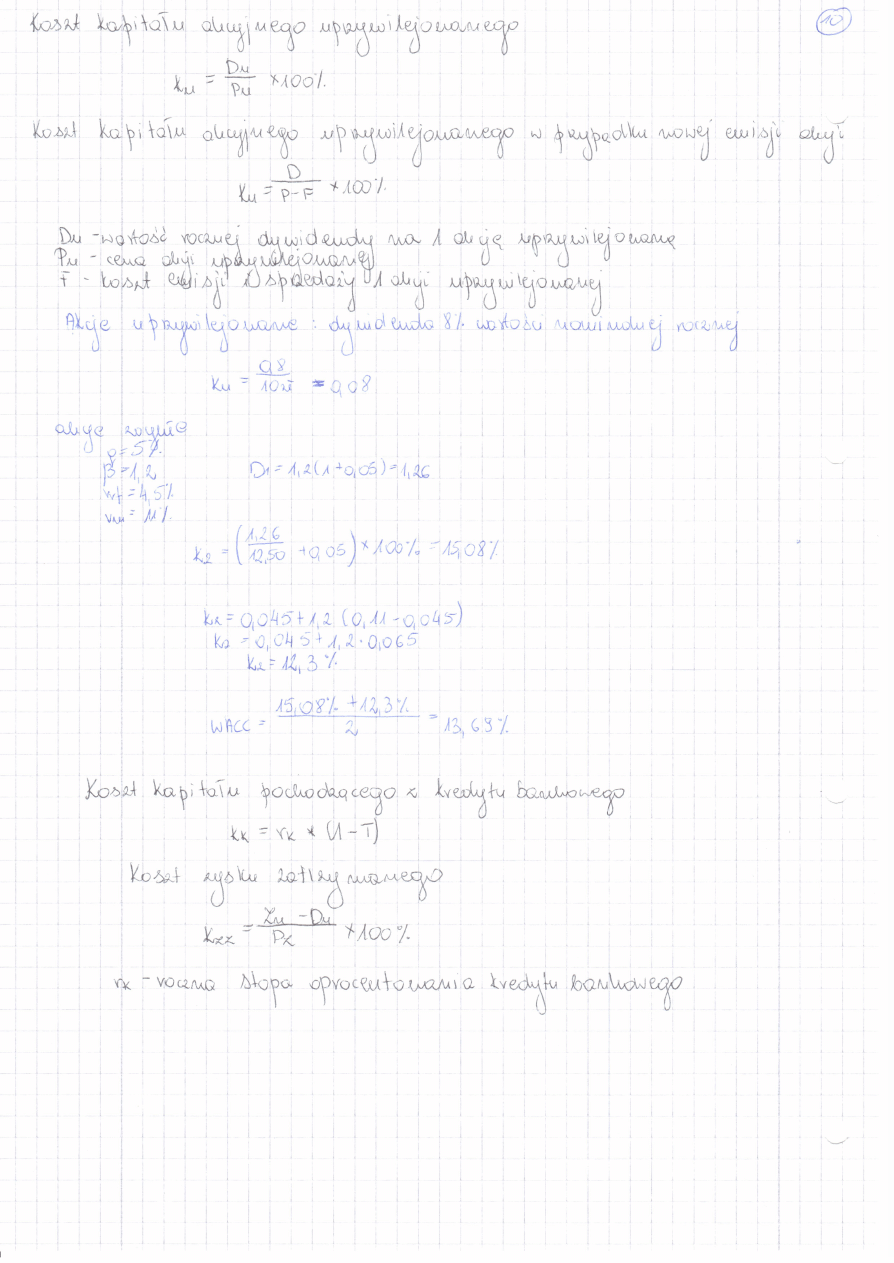 10
Koszt kapitału akcyjnego uprzywilejowanego
ku = Du/Pu × 100%
Koszt kapitału akcyjnego uprzywilejowanego w przypadku nowej emisji akcji
ku = D/P-F × 100%
Du - wartość rocznej dywidendy na 1 akcję uprzywilejowaną
Pu - cena akcji uprzywilejowanej
F - koszt emisji i sprzedaży 1 akcji uprzywilejowanej
Akcje uprzywilejowane : dywidenda 8% wartości nominalnej rocznej
ku = 0,8/10zł = 0,08
akcje zwykłe
g = 5%
β = 1,2 D1 = 1,2(1+0,05) = 1,26
rf = 4,5%
rm = 11%
kz = (1,26/12,50 + 0,05) × 100% = 15,08%
kz = 0,045 + 1,2 (0,11 - 0,045)
kz = 0,045 + 1,2 · 0,065
kz = 12,3%
WACC = 15,08% + 12,3%/2 = 13,69%
Koszt kapitału pochodzącego z kredytu bankowego
kk = rk × (1-T)
Koszt zysku zatrzymanego
kzz = Zu - Du/Pz × 100%
rk - roczna stopa oprocentowania kredytu bankowego